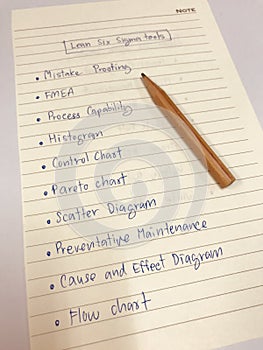 NOTE
[Lean Six Sigma tools]
• Mistake Proofing
• FMEA
• Process Capability
• Histogram
• Control Chart
• Pareto chart
• Scatter Diagram
• Preventative Maintenance
• Cause and Effect Diagram
• Flow chart